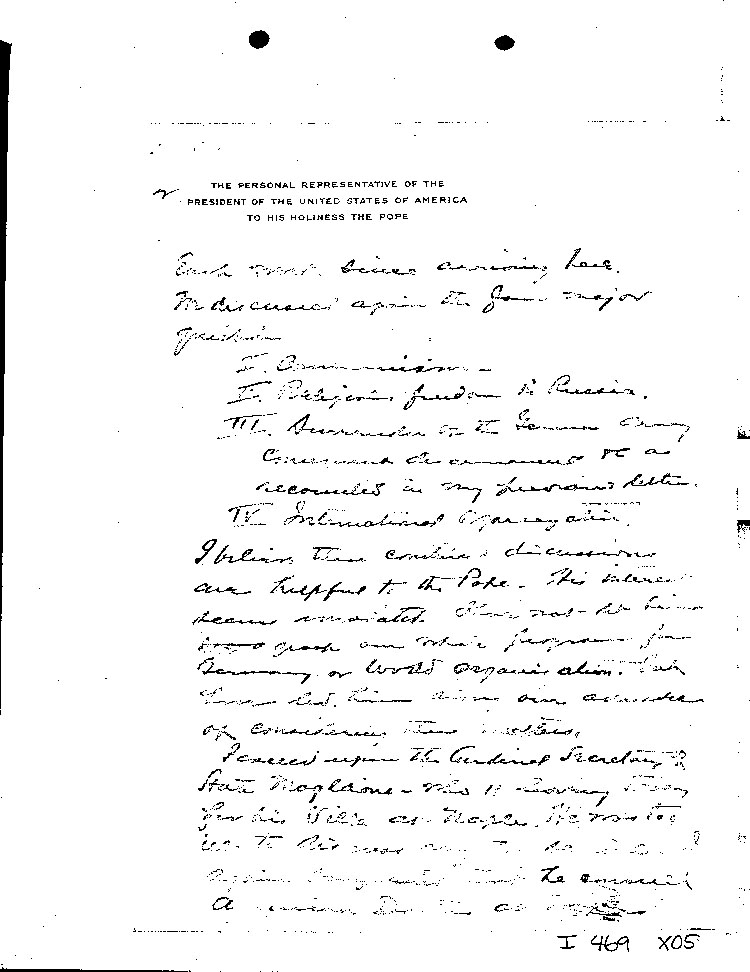 2
THE PERSONAL REPRESENTATIVE OF THE
PRESIDENT OF THE UNITED STATES OF AMERICA
TO HIS HOLINESS THE POPE
Each since arriving here.
We discussed again the four major
questions
I. Communism -
II. Religious freedom in Russia.
III. Surrender of the German Army
Command disarmament etc as
recounted in my previous letter.
IV International Organization.
I believe these continued discussions
are helpful to the Pope. His interest
seems Have not let him
grasp our whole program for
Germany or World Organization. but
have led him along our avenues
of considering these matters.
I called upon the Cardinal Secretary of
State Maglione - who is leaving
for his Villa at Naples. He was too
ill to discuss any
again that he
A
I 469 X05